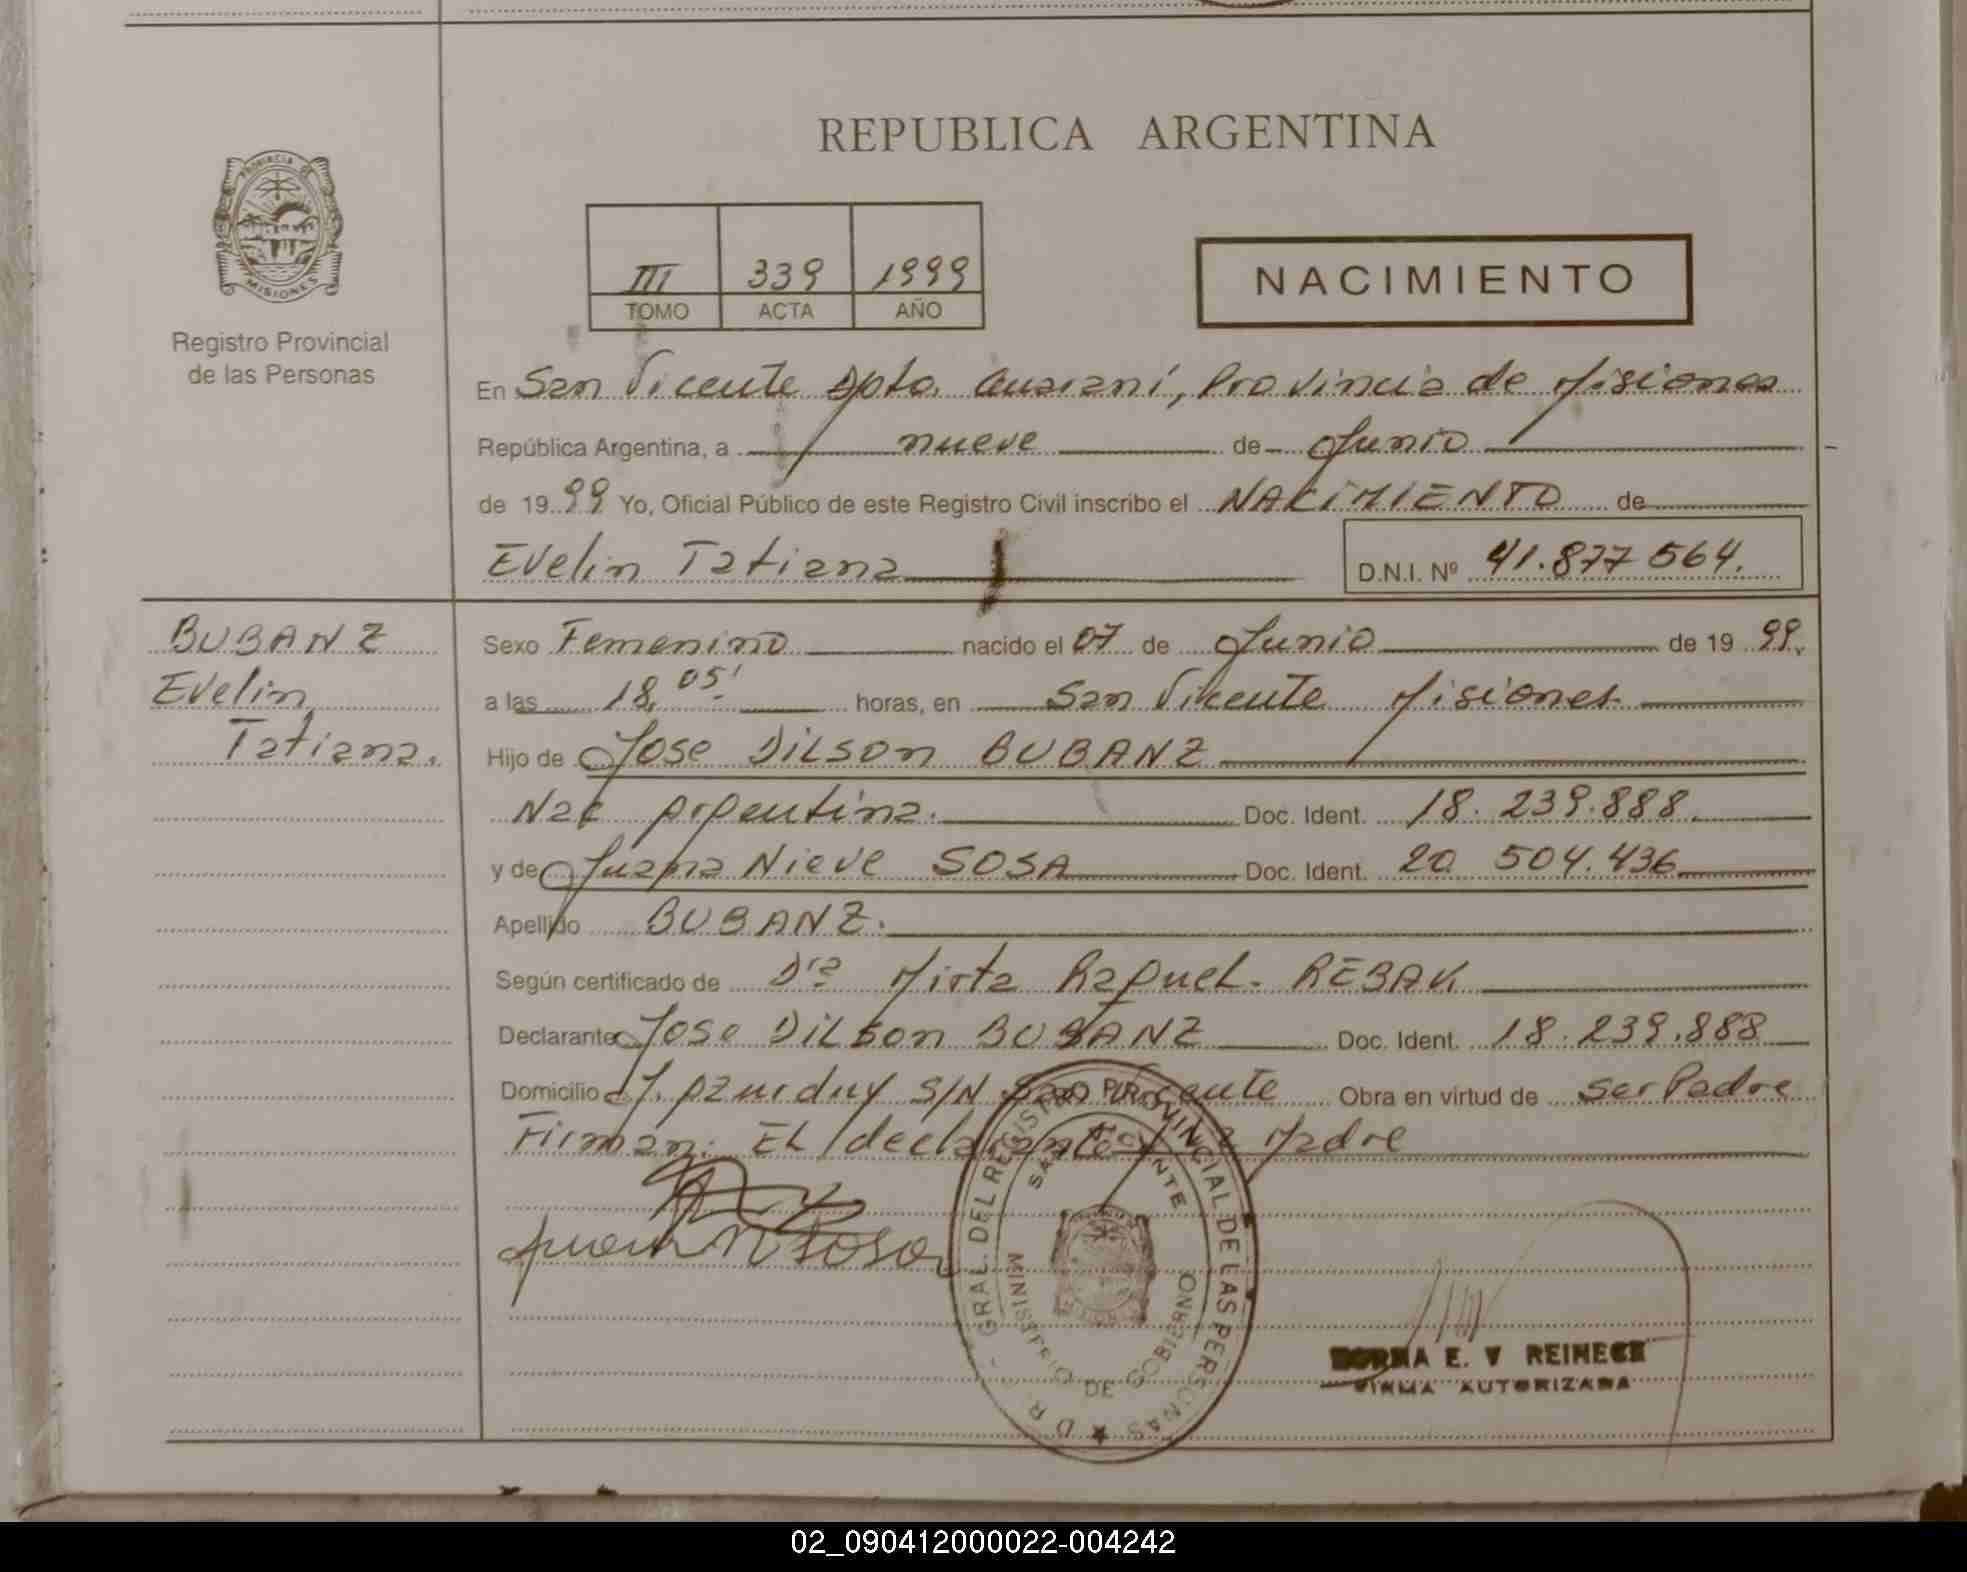 REPUBLICA ARGENTINA
PROVINCIA DE
MISIONES
Registro Provincial
de las Personas
III 339 1999
TOMO ACTA AÑO
NACIMIENTO
En San Vicente Dpto. Guaraní, Provincia de Misiones
República Argentina, a nueve de Junio
de 1999 Yo, Oficial Público de este Registro Civil inscribo el NACIMIENTO de
Evelin Tatiana
D.N.I. Nº 41.877564.
BUBANZ
Evelin
Tatiana.
Sexo Femenino nacido el 07 de Junio de 1999.
a las 18,05' horas, en San Vicente Misiones
Hijo de Jose Dilson BUBANZ
Nac Argentina. Doc. Ident. 18.239.888.
y de Juana Nieve SOSA Doc. Ident. 20 504.436
Apellido BUBANZ.
Según certificado de Dra Mirta Raquel.
Declarante Jose Dilson BUBANZ Doc. Ident. 18.239.888
Domicilio J. Azurduy S/N San Vicente Obra en virtud de ser Padre
Firman: El declarante y la Madre
Juana N Sosa
D R GRAL. DEL REGISTRO PROVINCIAL DE LAS PERSONAS
SAN VICENTE
MINISTERIO DE GOBIERNO
E. V REINECK
FIRMA AUTORIZADA
02_090412000022-004242